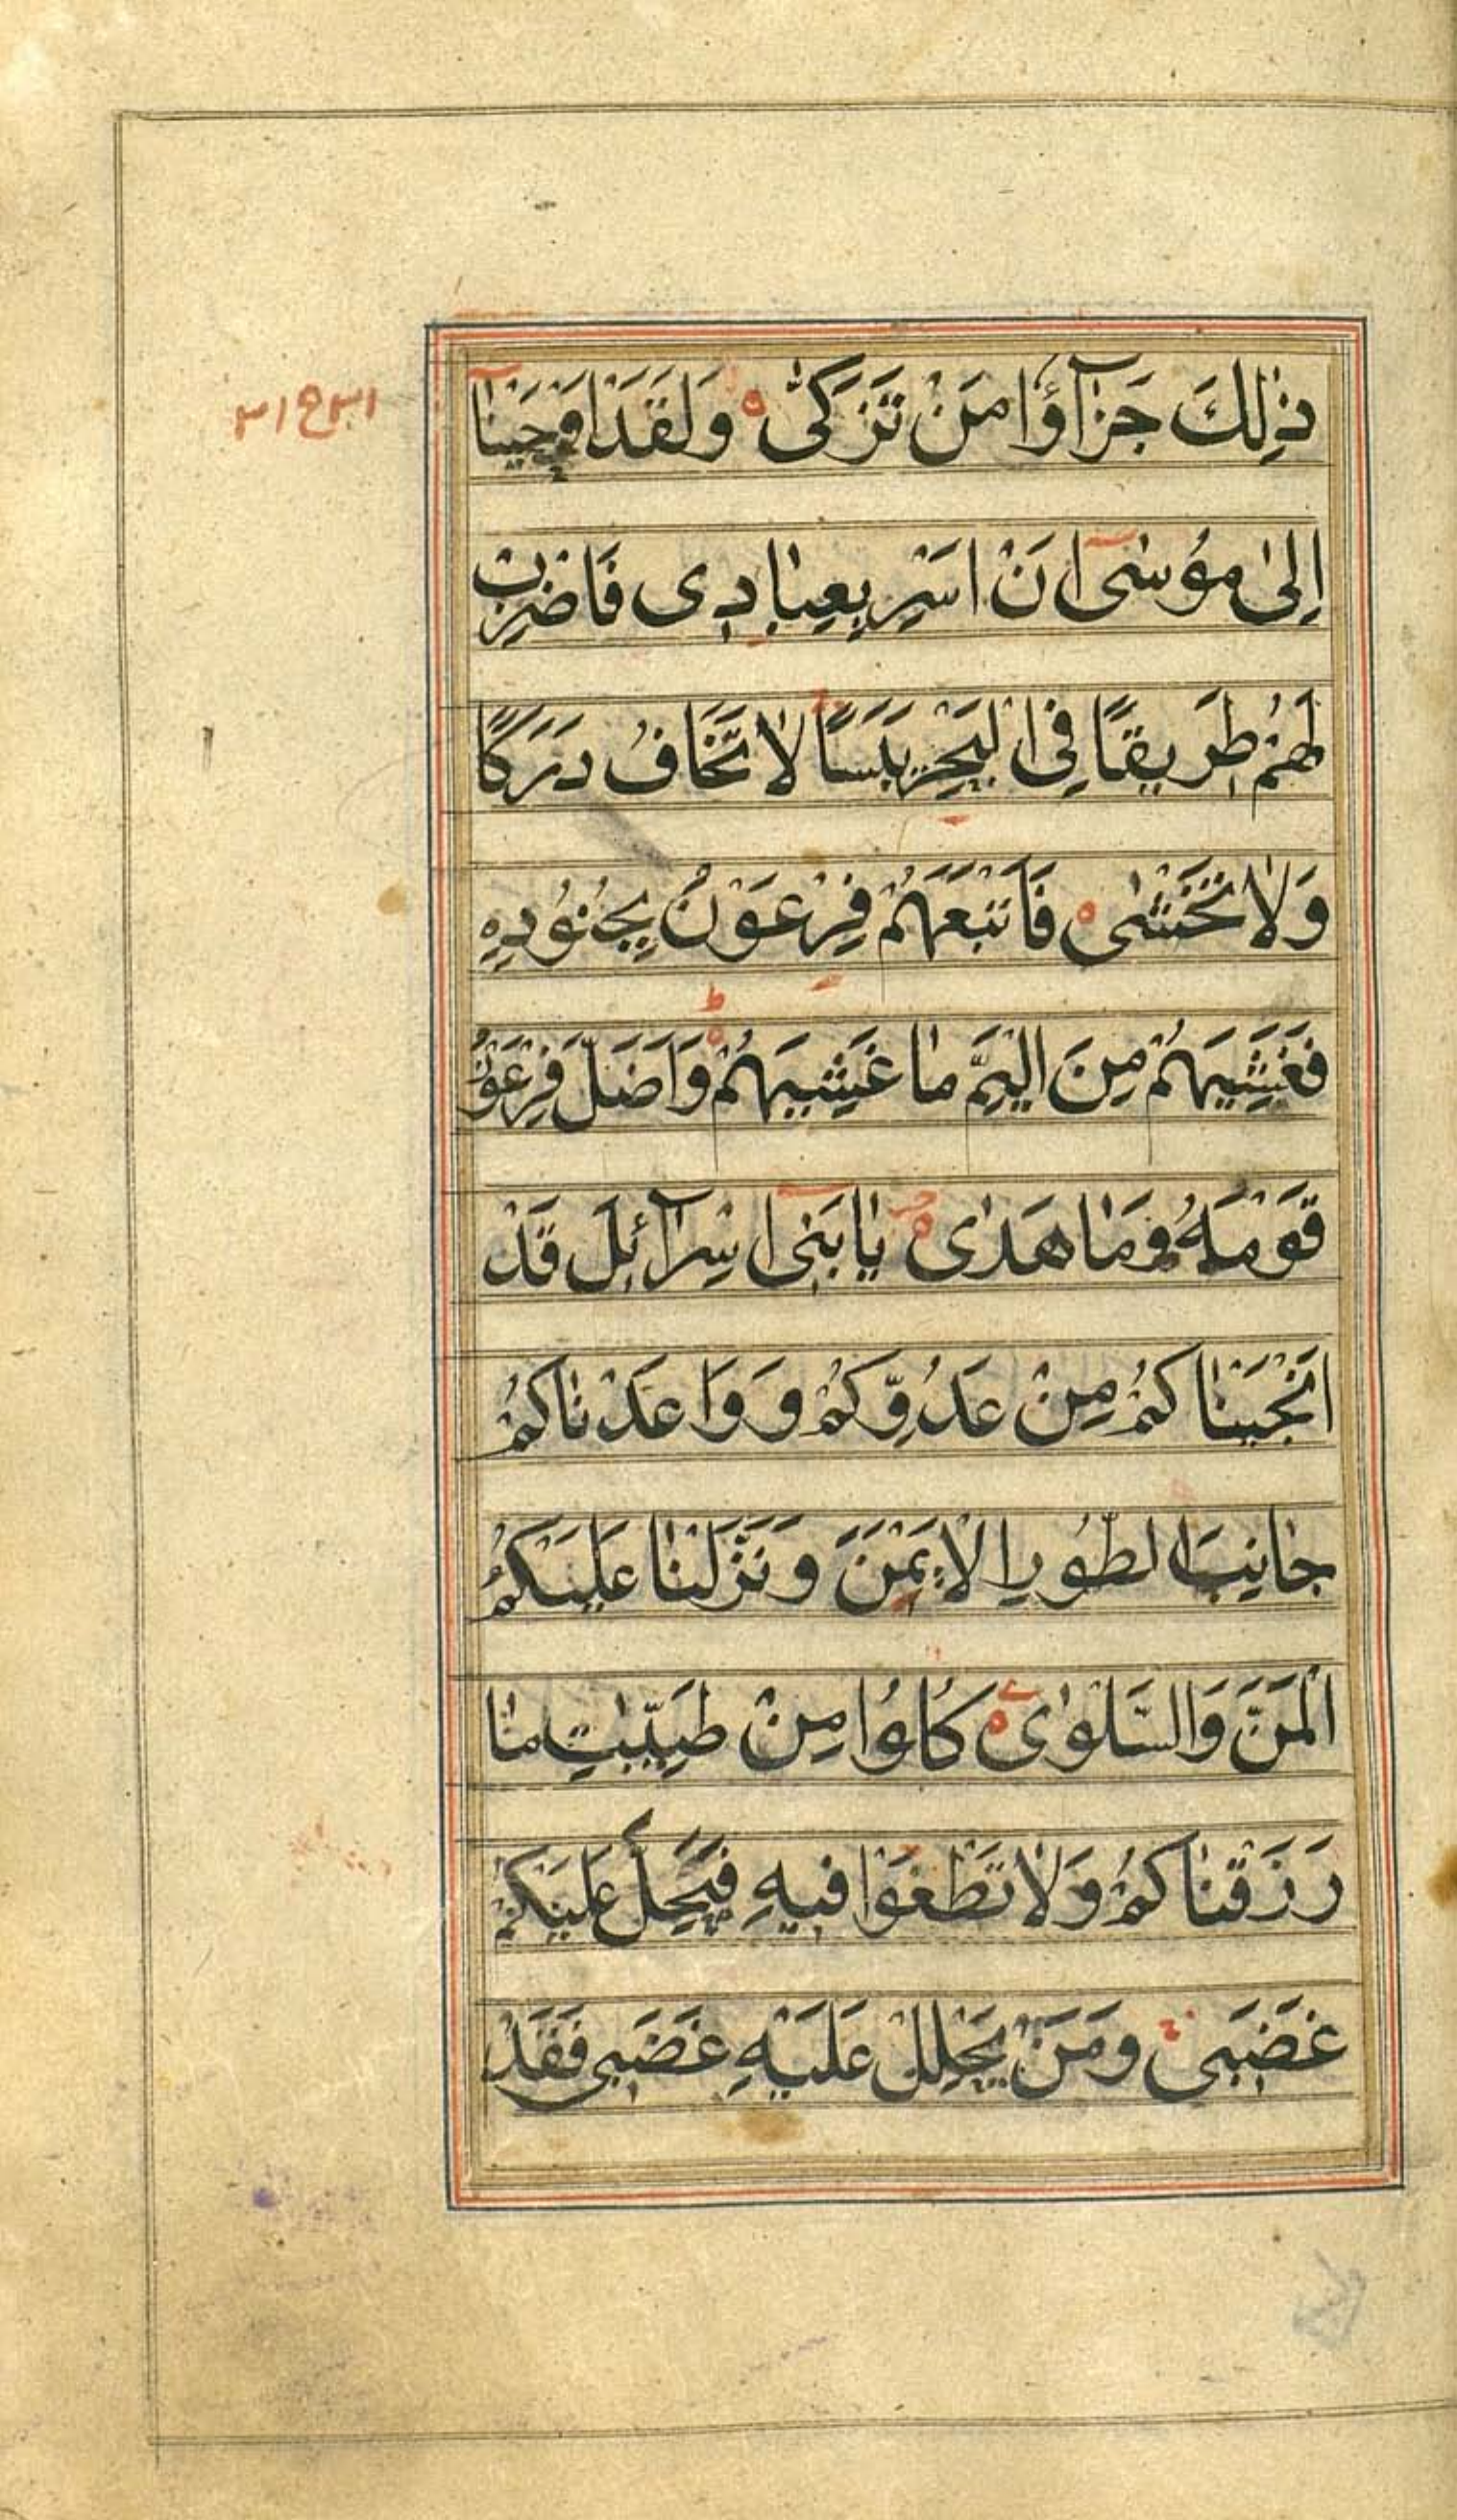 ذٰلِكَ جَزٰآؤُا مَنْ تَزَكّٰى ۝ وَلَقَدْ اَوْحَيْنٰآ
اِلٰى مُوْسٰىٓ اَنْ اَسْرِ بِعِبٰادِى فَاضْرِبْ
لَهُمْ طَرِيقًا فِى الْبَحْرِ يَبَسًا لٰا تَخَافُ دَرَكًا
وَلٰا تَخْشٰى ۝ فَاَتْبَعَهُمْ فِرْعَوْنُ بِجُنُوْدِهٖ
فَغَشِيَهُمْ مِنَ الْيَمِّ مٰا غَشِيَهُمْ ۝ وَاَضَلَّ فِرْعَوْنُ
قَوْمَهُ وَمٰا هَدٰى ۝ يٰا بَنِىٓ اِسْرٰآئِلَ قَدْ
اَنْجَيْنٰاكُمْ مِنْ عَدُوِّكُمْ وَوَاعَدْنٰاكُمْ
جٰانِبَ الطُّوْرِ الْاَيْمَنَ وَنَزَّلْنٰا عَلَيْكُمُ
الْمَنَّ وَالسَّلْوٰى ۝ كُلُوْا مِنْ طَيِّبٰتِ مٰا
رَزَقْنٰاكُمْ وَلٰا تَطْغَوْا فِيهِ فَيَحِلَّ عَلَيْكُمْ
غَضَبِى وَمَنْ يَحْلِلْ عَلَيْهِ غَضَبِى فَقَدْ